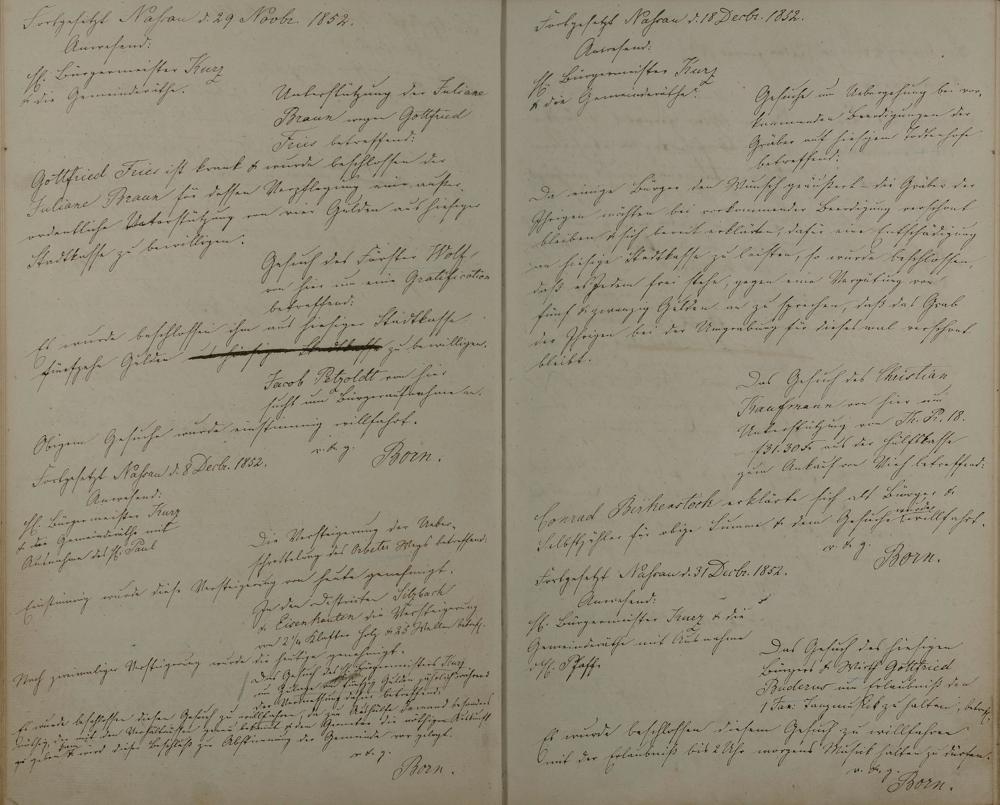 Fortgesetzt Nassau d. 29 Novbr. 1852.
Anwesend:
H. Bürgermeister Kurz
& die Gemeinderäthe.
Unterstützung der Juliane
Braun wegen Gottfried
Feies betreffend:
Gottfried Feies ist krank & wurde beschlossen der
Juliane Braun für dessen Verpflegung eine außer-
ordentliche Unterstützung von vier Gulden aus hiesiger
Stadtkasse zu bewilligen.
Gesuch des Förster Wolf
von hier um eine Gratification
betreffend:
Es wurde beschlossen ihm aus hiesiger Stadtkasse
fünfzehn Gulden zu bewilligen.
Jacob Petzoldt von hier
sucht um Bürgeraufnahme
Obigem Gesuche wurde einstimmig willfahrt.
v. k. g.
Born.
Fortgesetzt Nassau d. 8 Decbr. 1852.
Anwesend:
H. Bürgermeister Kurz
& die Gemeinderäthe mit
Ausnahme des H. Paul
Die Versteigerung der Ueber-
des Wegs betreffend:
Einstimmig wurde diese Versteigerung von heute genehmigt.
In den Distrikten
& Eisenkauten die Versteigerung
von 2¼ Klafter Holz & 25 Wellen betrf.
Nach zweimaliger Versteigerung wurde die heutige genehmigt.
Das Gesuch des H. Bürgermeisters Kurz
um Zulage von fünfzig Gulden jährlich
betreffend:
Es wurde beschlossen diesem Gesuch zu willfahren, da zur Aushülfe Jemand
der mit den Verhältnissen ganz bekannt
& wird dieser Beschluß zur Abstimmung der Gemeinde vor gelegt.
v. k. g.
Born.
Fortgesetzt Nassau d. 18 Decbr. 1852.
Anwesend:
H. Bürgermeister Kurz
& die Gemeinderäthe.
Gesuche um Uebergehung bei vor-
kommenden Beerdigungen der
Gräber auf hiesigem Todtenhofe
betreffend:
Da einige Bürger den Wunsch geäussert die Gräber der
Ihrigen möchten bei vorkommender Beerdigung verschont
bleiben & sich bereit erklärten, dafür eine Entschädigung
an hiesige Stadtkasse zu leisten, so wurde beschlossen,
daß es Jedem frei stehe, gegen eine Vergütung von
fünf & zwanzig Gulden an zu sprechen, daß das Grab
der Ihrigen bei der Umgrabung für dieses mal verschont
bleibt.
Das Gesuch des Christian
Kaufmann von hier um
Unterstützung von Th. R. 18.
f 31.30 Xr aus der Hülfskasse
zum Ankauf von Vieh betreffend:
Conrad Birkenstock erklärte sich als Bürge &
Selbstzahler für obige Summe & dem Gesuche wurde willfahrt.
v. k. g.
Born.
Fortgesetzt Nassau d. 31 Decbr. 1852.
Anwesend:
H. Bürgermeister Kurz & die
Gemeinderäthe mit Ausnahme
d. H. Pfaff.
Das Gesuch des hiesigen
Bürgers & Wirth Gottfried
Buderus um Erlaubniß den
1 Jan. Tanzmusik zu halten, betrf.
Es wurde beschlossen diesem Gesuch zu willfahren
mit der Erlaubniß bis 2 Uhr morgens Musik halten zu dürfen.
v. k. g.
Born.